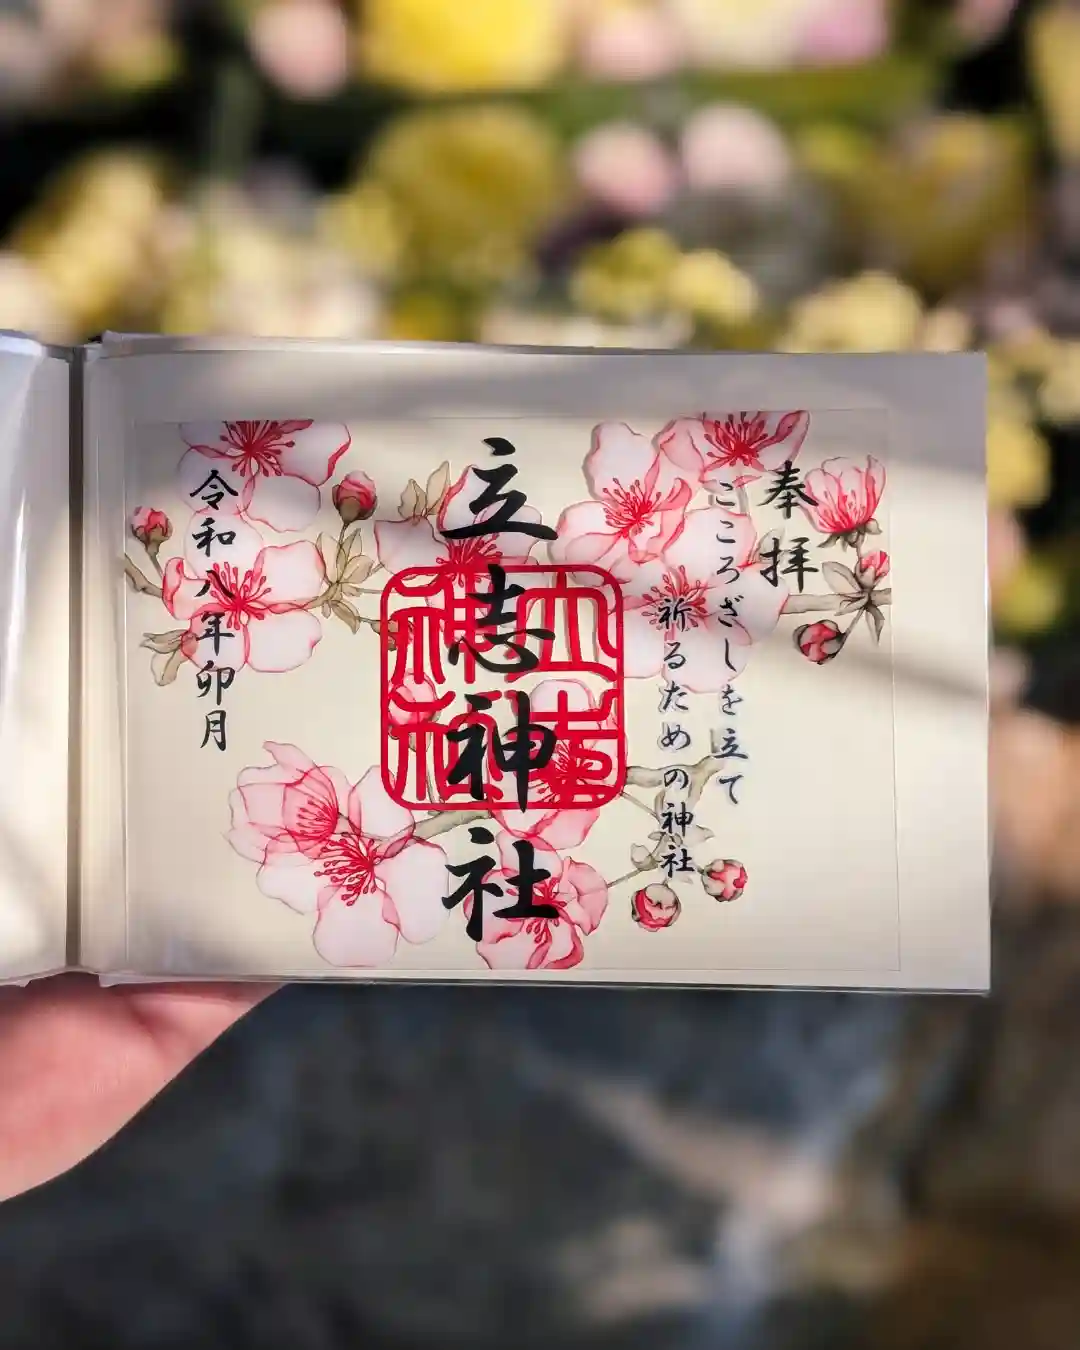 奉拝
こころざしを立て
祈るための神社
立志神社
立志神社
令和八年卯月